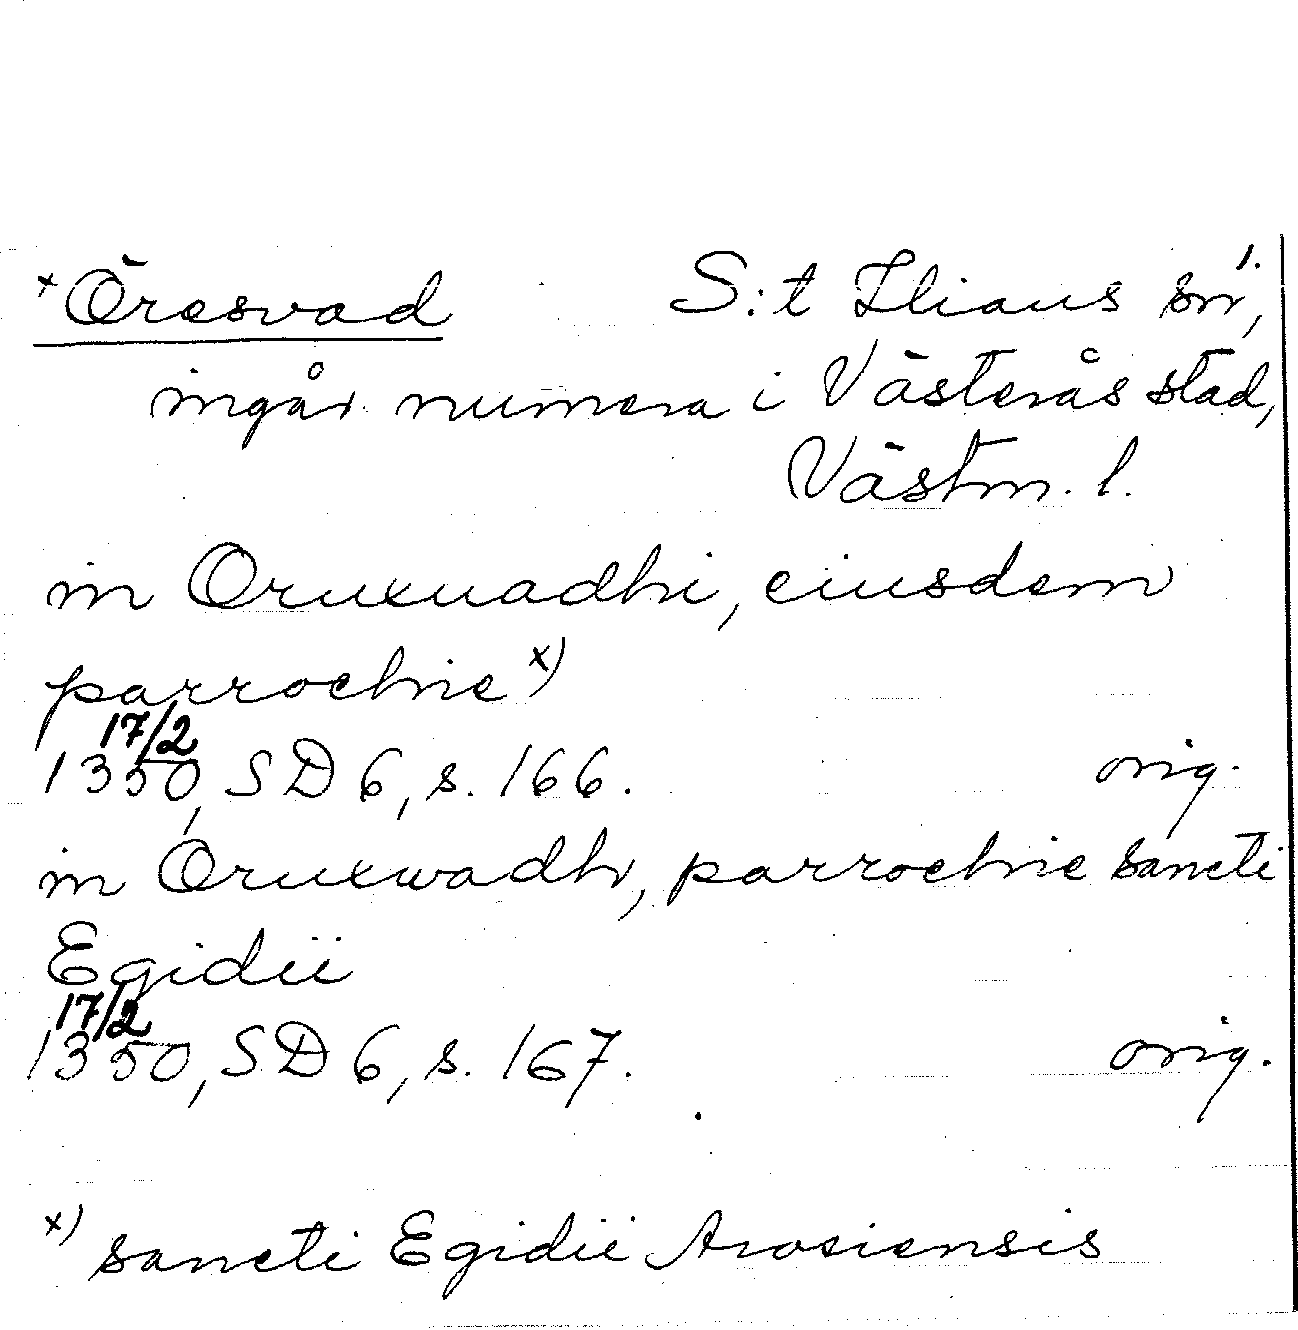 x Öresvad S:t Ilians sn, 1.
ingår numera i Västerås stad,
Västm. l.
in Oruxuadhi, eiusdem
parrochie x)
17/2
1350, SD 6, s. 166. orig.
in Oruxwadh, parrochie sancti
Egidii
17/2
1350, SD 6, s. 167. orig.
x) sancti Egidii Arosiensis